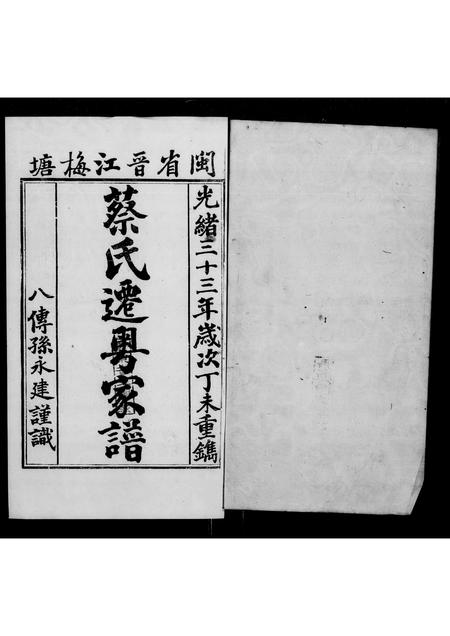 閩省晉江梅塘
光緒三十三年歲次丁未重鐫
蔡氏遷粵家譜
八傳孫永建謹識